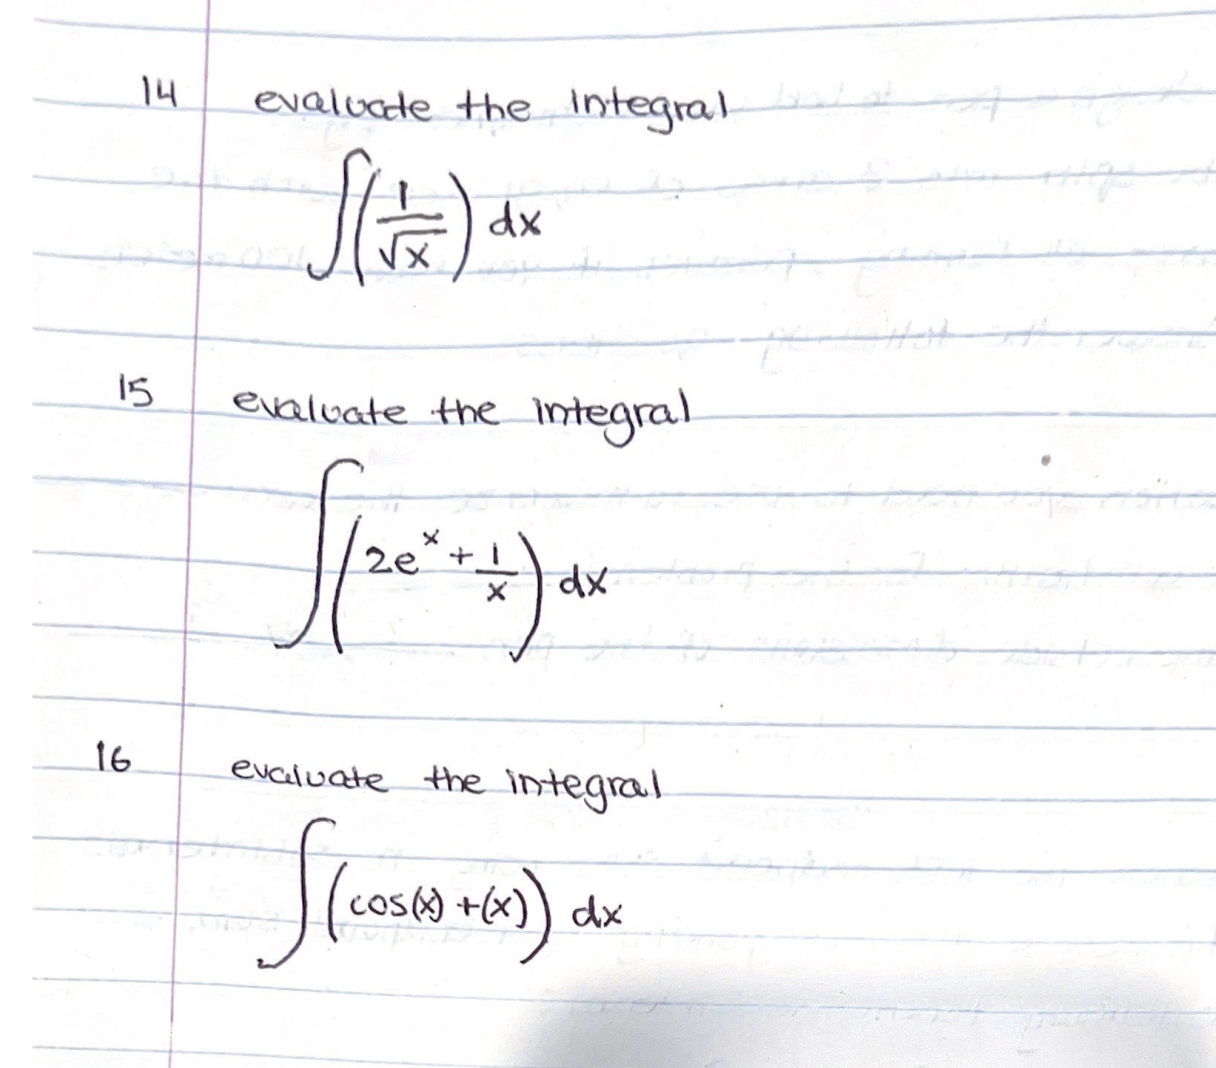 14 evaluate the integral
∫(1/√x) dx
15 evaluate the integral
∫(2eˣ + 1/x) dx
16 evaluate the integral
∫(cos(x) + (x)) dx